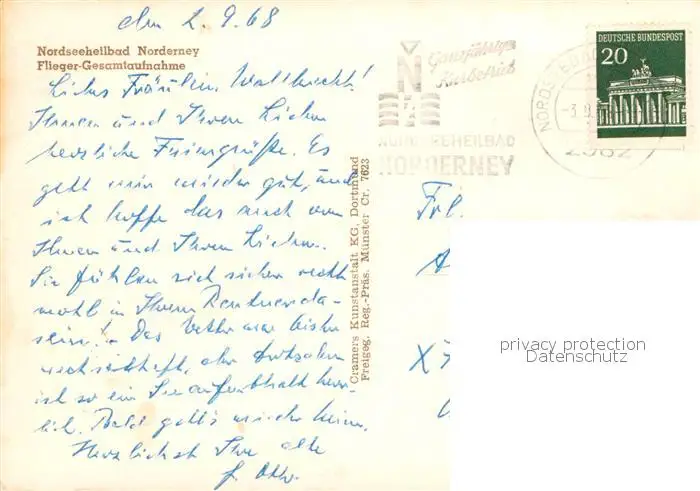 den 2.9.68
Nordseeheilbad Norderney
Flieger-Gesamtaufnahme
Liebes Fräulein
Ihnen und Ihren Lieben
herzliche Feriengrüße. Es
geht mir wieder gut, und
ich hoffe das auch von
Ihnen und Ihren Lieben.
Sie fühlen sich sicher recht
wohl in Ihrem Rentnerda-
sein! Das Wetter war bisher
wechselhaft, aber trotzdem
ist so ein Seeaufenthalt herr-
lich. Bald geht's wieder heim.
Herzlichst Ihre alte
Cramers Kunstanstalt KG, Dortmund
Freigeg. Reg.-Präs. Münster Cr. 7623
Ganzjähriger
Kurbetrieb
N
NORDSEEHEILBAD
NORDERNEY
DEUTSCHE BUNDESPOST
20
2982
Frl.
privacy protection
Datenschutz